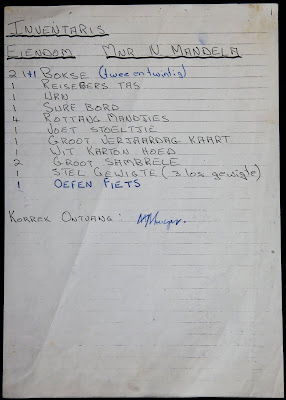 INVENTARIS
EIENDOM MNR N MANDELA
2 1+1 BOKSE (twee en twintig)
1 REISEBERS TAS
1 URN
1 SURF BORD
4 ROTTANG MANDJIES
1 VOET STOELTJIE
1 GROOT VERJAARDAG KAART
1 WIT KARTON HOED
2 GROOT SAMBRELE
1 STEL GEWIGTE (3 los gewigte)
1 OEFEN FIETS
KORREK ONTVANG: